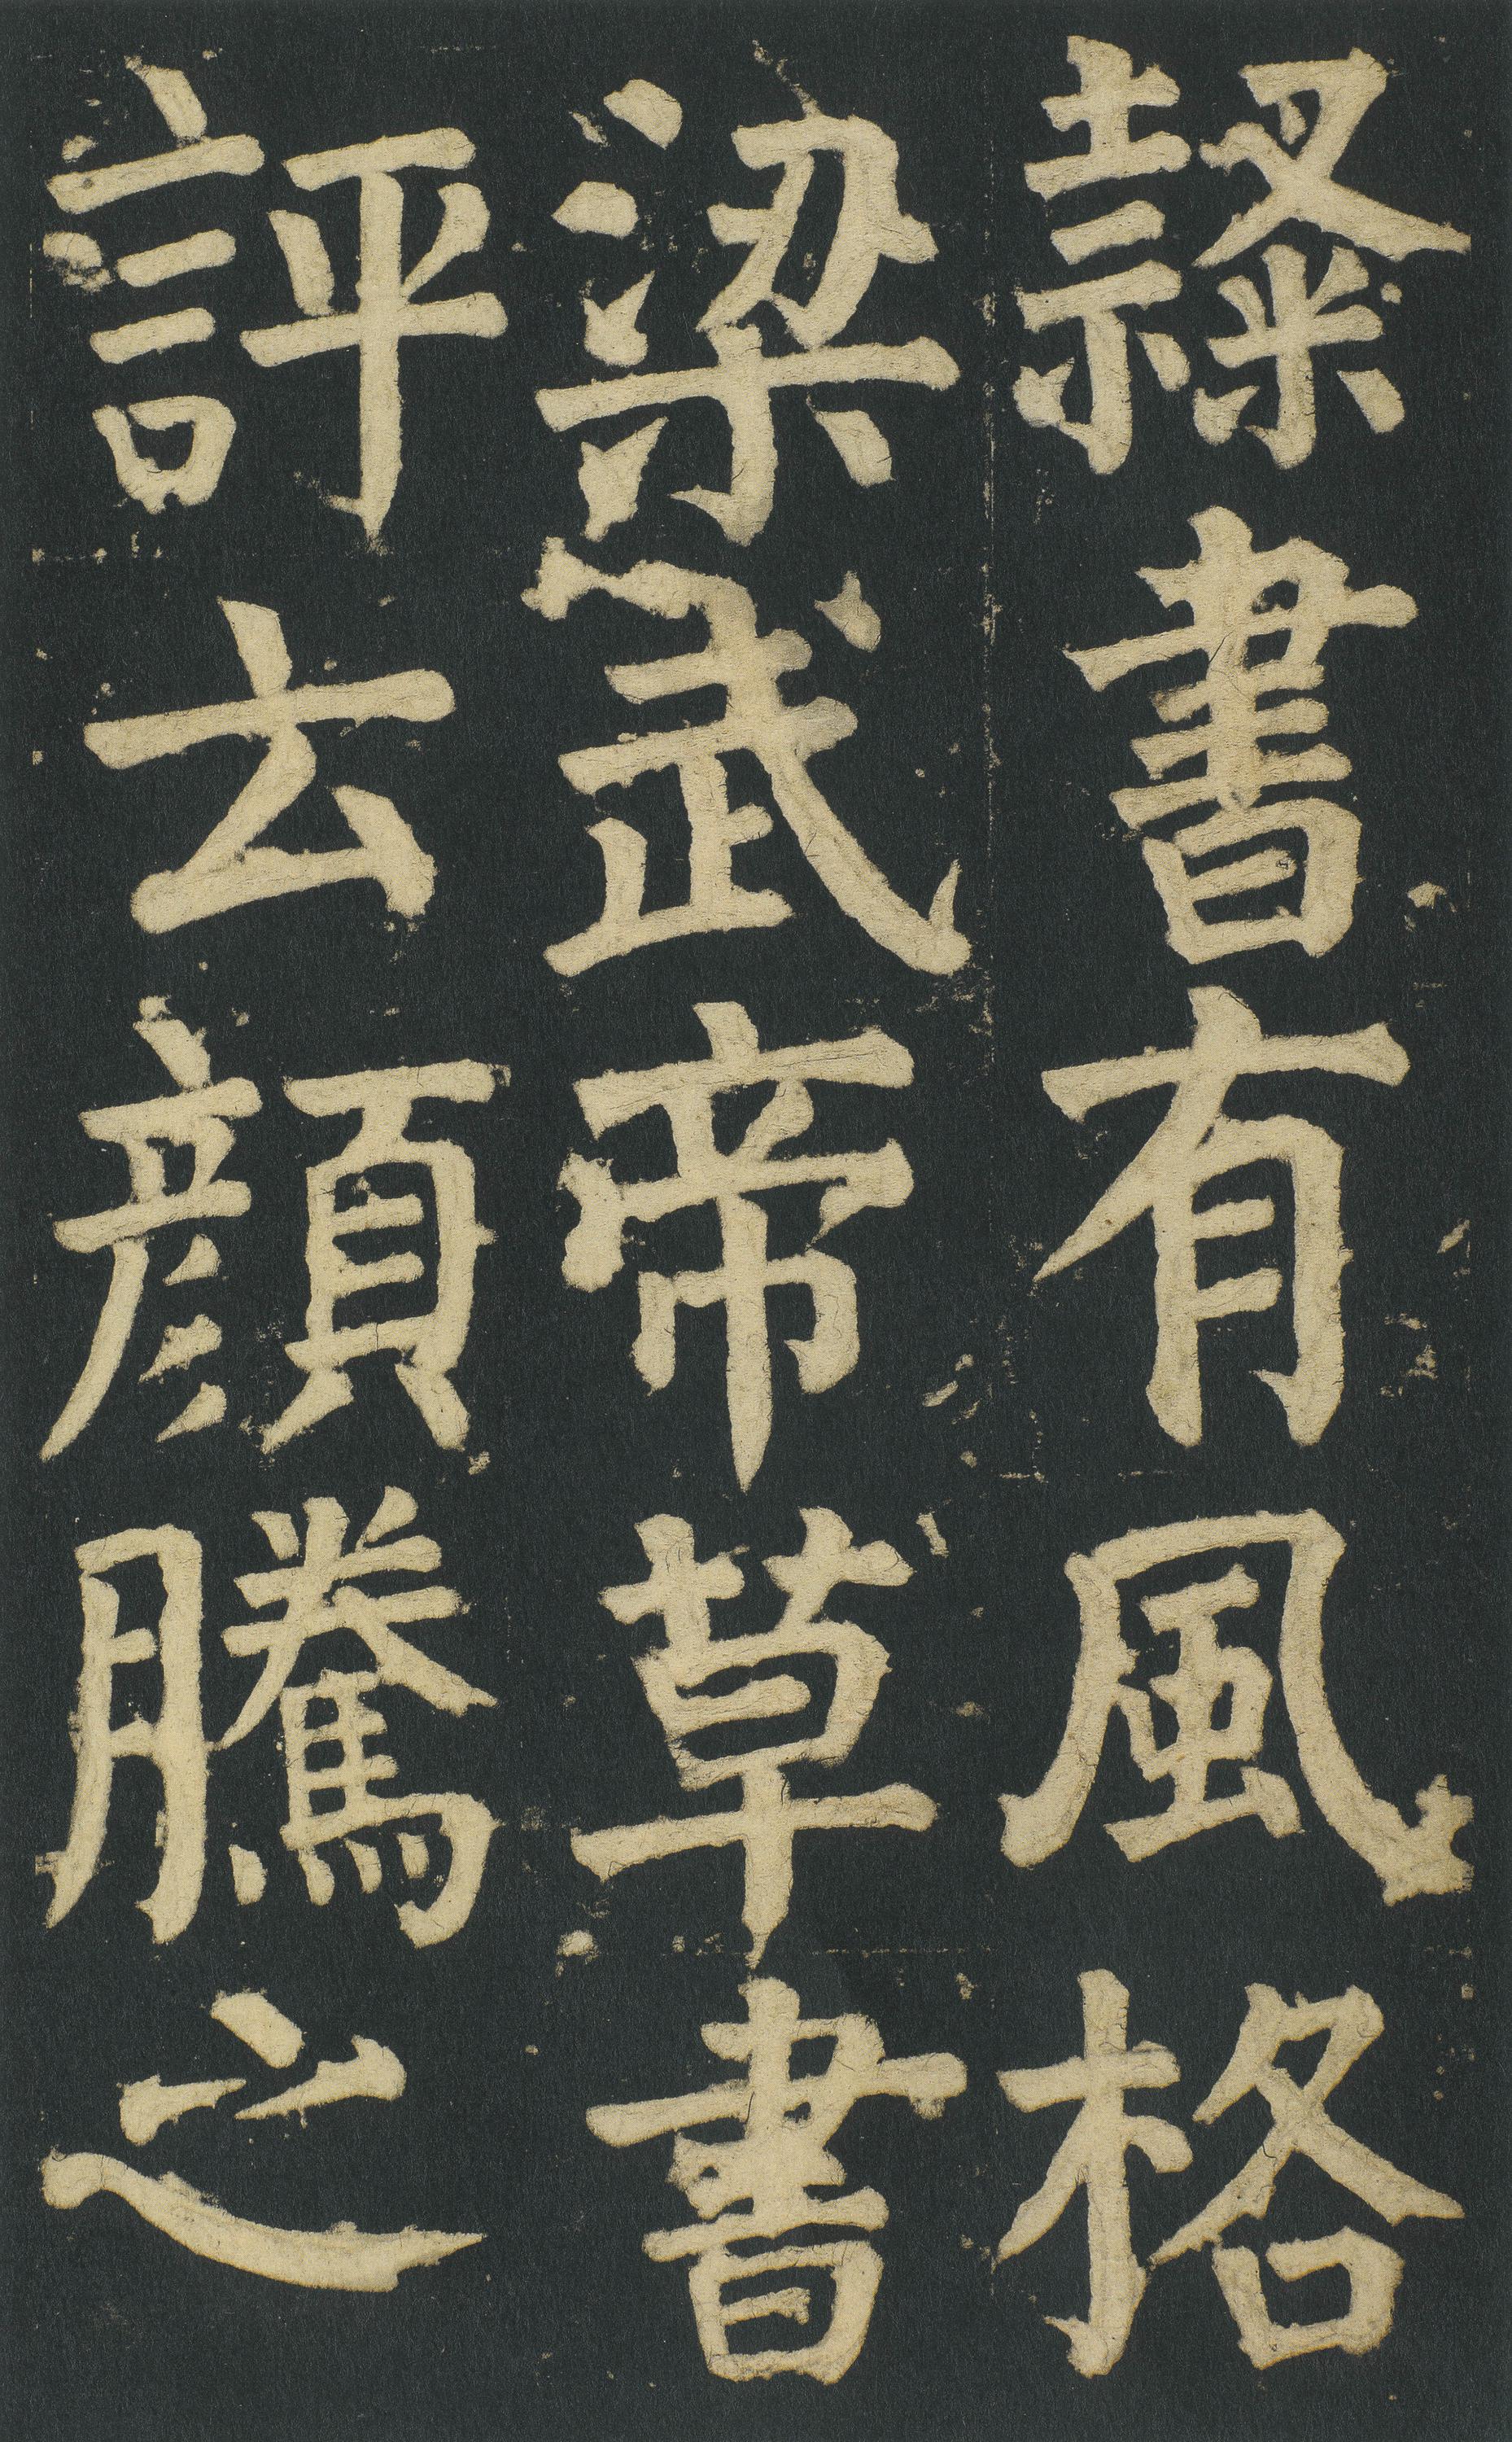 隸書有風格
梁武帝草書
評云顏騰之